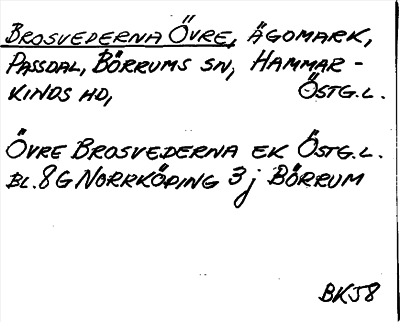 BROSVEDERNA ÖVRE, ÄGOMARK,
PASSDAL, BÖRRUMS SN, HAMMAR-
KINDS HD, ÖSTG.L.
ÖVRE BROSVEDERNA EK ÖSTG.L.
BL. 8G NORRKÖPING 3j BÖRRUM
BKJ8